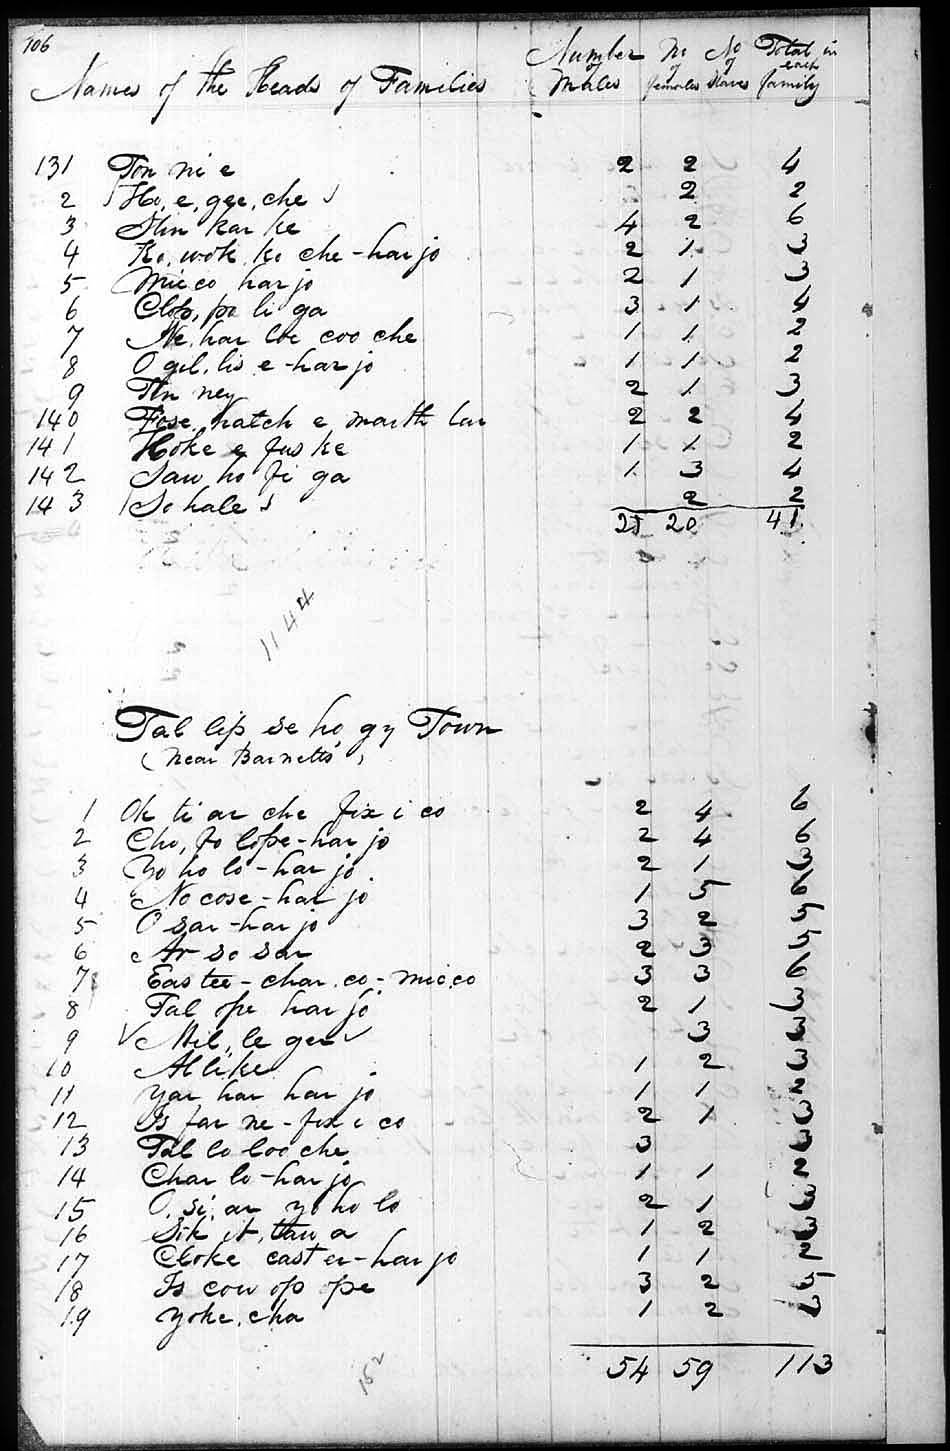 106
Names of the Heads of Families Number of Males No of females No of Slaves Total in each family
131 Ton ni e 2 2 4
2 Ho, e, gee, che 2 2
3 Hin kar ke 4 2 6
4 Ko, wok ko che - har jo 2 1 3
5 Micco har jo 2 1 3
6 Clop, po li ga 3 1 4
7 Ne har loc coo che 1 1 2
8 O gil, lis e - har jo 1 1 2
9 ney 2 1 3
140 Fose hatch e marth lar 2 2 4
141 Hoke e fus ke 1 1 2
142 Sau ho fi ga 1 3 4
143 So hale 2 2
21 20 41
1144
Tal lip se ho gy Town
(Near Barnetts)
1 Ok ti ar che fix i co 2 4 6
2 Cho, fo lope - har jo 2 4 6
3 Yo ho lo - har jo 2 1 3
4 No cose - har jo 1 5 6
5 O sar - har jo 3 2 5
6 Ar so sar 2 3 5
7 Eas tee - char co - micco 3 3 6
8 Tal ope har jo 2 1 3
9 Mil, le ger 3 3
10 Al like 1 2 3
11 Yar har har jo 1 1 2
12 Is far ne - fix i co 2 1 3
13 Tal lo loo che 3 3
14 Char lo - har jo 1 1 2
15 O, si, ar yo ho lo 2 1 3
16 Sik it, tau a 1 2 3
17 Cloke cast er - har jo 1 1 2
18 Is cow op ope 3 2 5
19 Yoke, cha 1 2 3
54 59 113
152